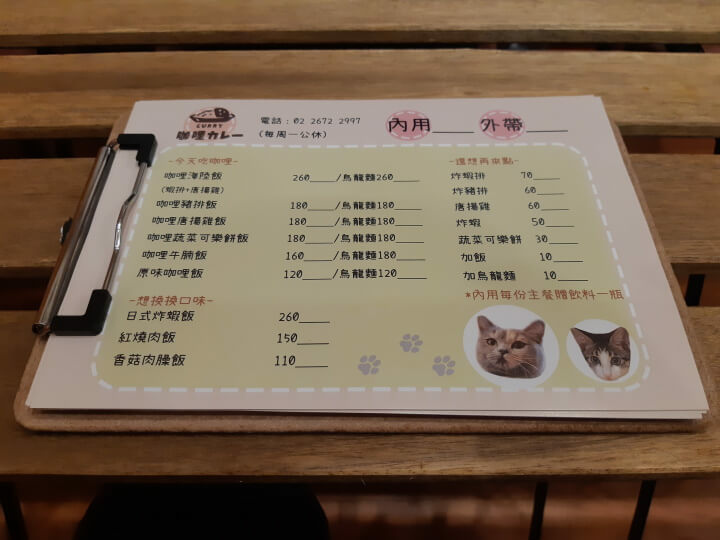 CURRY
咖哩カレー
電話：02 2672 2997
(每周一公休)
內用____ 外帶____
-今天吃咖哩-
咖哩海陸飯 260____/烏龍麵260____
(蝦排+唐揚雞)
咖哩豬排飯 180____/烏龍麵180____
咖哩唐揚雞飯 180____/烏龍麵180____
咖哩蔬菜可樂餅飯 180____/烏龍麵180____
咖哩牛腩飯 160____/烏龍麵180____
原味咖哩飯 120____/烏龍麵120____
-想換換口味-
日式炸蝦飯 260____
紅燒肉飯 150____
香菇肉臊飯 110____
-還想再來點-
炸蝦排 70____
炸豬排 60____
唐揚雞 60____
炸蝦 50____
蔬菜可樂餅 30____
加飯 10____
加烏龍麵 10____
*內用每份主餐贈飲料一瓶